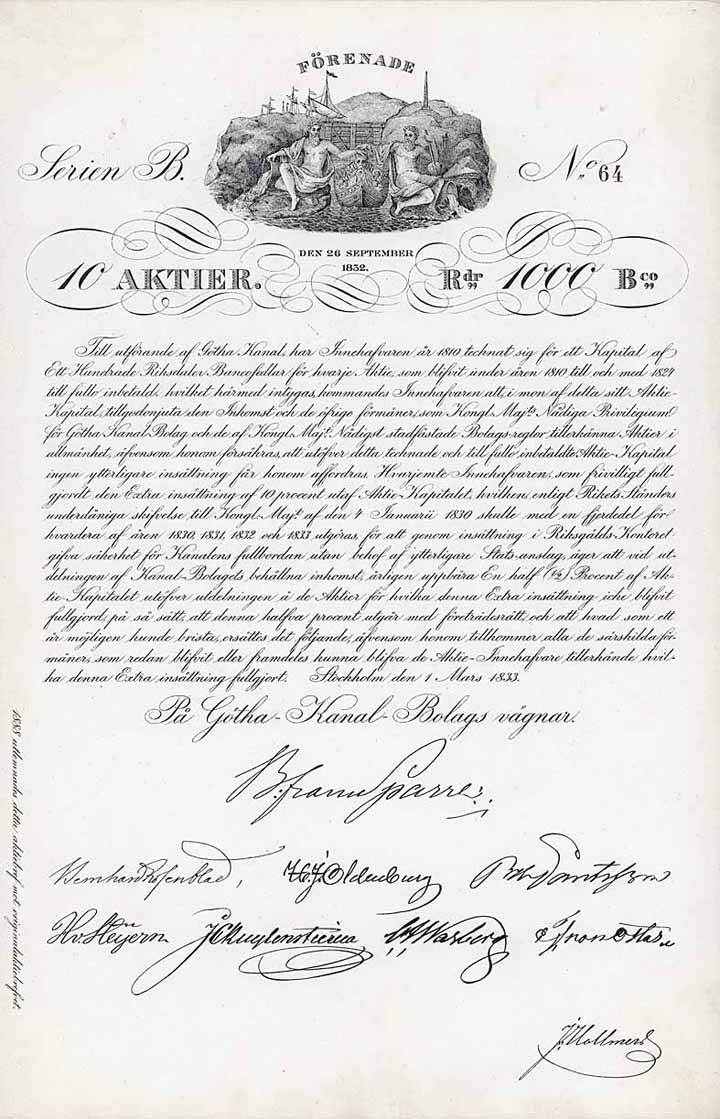 FÖRENADE
Serien B.
No 64
DEN 26 SEPTEMBER
1832.
10 AKTIER.
Rdr 1000 Bco
Till utförande af Götha Kanal, har Innehafvaren år 1810 tecknat sig för ett Kapital af
Ett Hundrade Riksdaler Bancosedlar för hvarje Aktie, som blifvit under åren 1810 till och med 1824
till fullo inbetald, hvilket härmed intygas, kommandes Innehafvaren att, i mon af detta sitt Aktie-
Kapital, tillgodonjuta den Inkomst och de öfrige förmåner, som Kongl. Majts. Nådiga Privilegium
för Götha Kanal-Bolag och de af Kongl. Majt. Nådigst stadfästade Bolags-reglor tillerkänna Aktier i
allmänhet, äfvensom honom försäkras, att utöfver detta tecknade och till fullo inbetaldte Aktie-Kapital
ingen ytterligare insättning får honom affordras. Hvarjemte Innehafvaren, som frivilligt full-
gjordt den Extra insättning af 10 procent utaf Aktie-Kapitalet, hvilken, enligt Rikets Ständers
underdåniga skrifvelse till Kongl. Majt. af den 4 Januarii 1830 skulle med en fjerdedel för
hvardera af åren 1830, 1831, 1832 och 1833 utgöras, för att genom insättning i Riksgälds-Kontoret
gifva säkerhet för Kanalens fullbordan utan behof af ytterligare Stats-anslag, äger att vid ut-
delningen af Kanal-Bolagets behållna inkomst, årligen uppbära En half (1/2) Procent af Ak-
tie-Kapitalet utöfver utdelningen å de Aktier för hvilka denna Extra insättning icke blifvit
fullgjord, på så sätt, att denna halfva procent utgår med företrädesrätt, och att hvad som ett
år möjligen kunde brista, ersättes det följande, äfvensom honom tillkommer alla de särskilda för-
måner, som redan blifvit eller framdeles kunna blifva de Aktie-Innehafvare tillerkände hvil-
ka denna Extra insättning fullgjort. Stockholm den 1 Mars 1833.
På Götha-Kanal-Bolags vägnar.
B. franc Sparre
Bernhard Rosenblad, Oldenburg
J C Kuylenstierna C W Warberg
1888 utlemnades detta aktiebref mot originalaktiebrefvet.